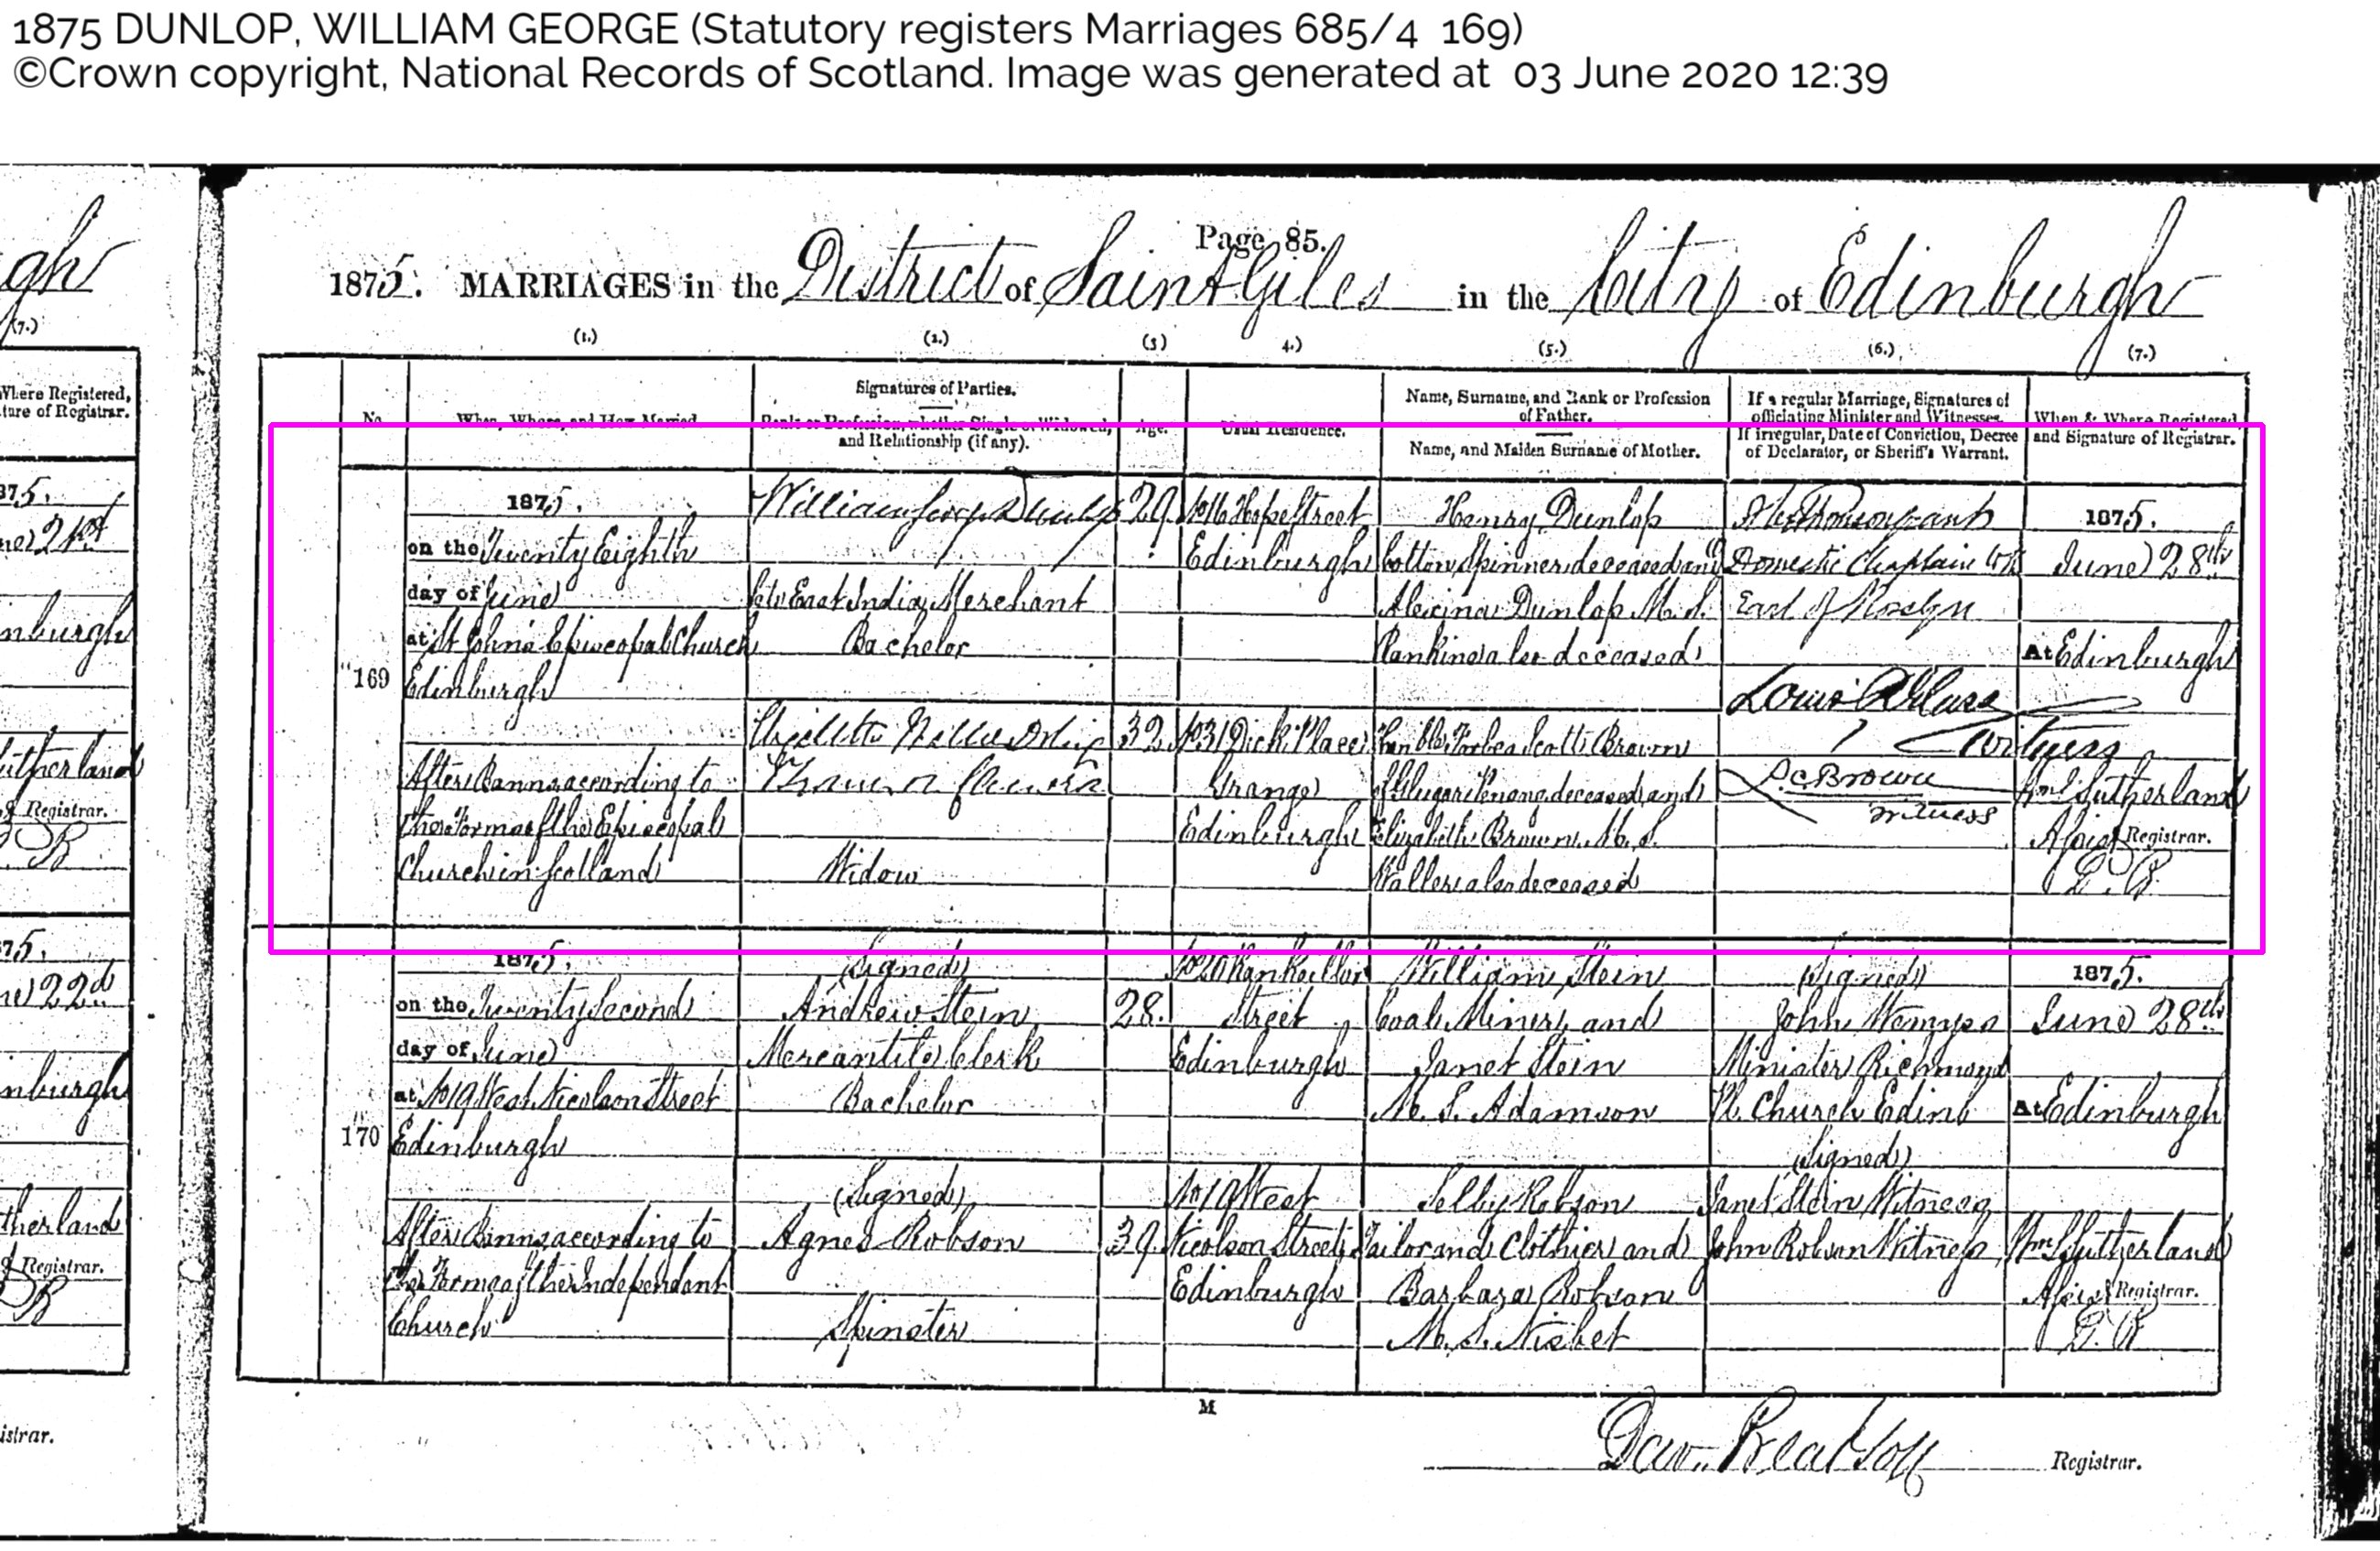 1875 DUNLOP, WILLIAM GEORGE (Statutory registers Marriages 685/4 169)
©Crown copyright, National Records of Scotland. Image was generated at 03 June 2020 12:39
Page 85.
1875. MARRIAGES in the District of Saint Giles in the City of Edinburgh
(1.) (2.) (3) 4.) (5.) (6.) (7.)
No. When, Where, and How Married.
Signatures of Parties.
Rank or Profession, whether Single or Widowed,
and Relationship (if any).
Age.
Usual Residence.
Name, Surname, and Rank or Profession
of Father.
Name, and Maiden Surname of Mother.
If a regular Marriage, Signatures of
officiating Minister and Witnesses.
If irregular, Date of Conviction, Decree
of Declarator, or Sheriff's Warrant.
When & Where Registered,
and Signature of Registrar.
169
1875.
on the Twenty Eighth
day of June
at St John's Episcopal Church
Edinburgh
After Banns according to
the Forms of the Episcopal
Church in Scotland
William George Dunlop
East India Merchant
Bachelor
Widow
29
32
No 16 Hope Street
Edinburgh
No 31 Dick Place
Grange
Edinburgh
Henry Dunlop
Cotton Spinner deceased and
Alexina Dunlop M.S.
Rankine also deceased
Forbes Scott Brown
of Glugar Penang deceased and
Elizabeth Brown M.S.
Waller also deceased
Domestic Chaplain to the
Earl of Rosslyn
Witness
Brown
Witness
1875.
June 28th
At Edinburgh
Wm Sutherland
Assist Registrar.
170
1875.
on the Twenty Second
day of June
at No 19 West Nicolson Street
Edinburgh
After Banns according to
the Forms of the Independent
Church
(Signed)
Andrew Stein
Mercantile Clerk
Bachelor
(Signed)
Agnes Robson
Spinster
28.
39
No 20 Rankeillor
Street
Edinburgh
No 19 West
Nicolson Street
Edinburgh
William Stein
Coal Miner, and
Janet Stein
M.S. Adamson
Selby Robson
Tailor and Clothier and
Barbara Robson
M.S. Nisbet
(Signed)
John Wemyss
Minister Richmond
Pl. Church Edinb
(Signed)
Janet Stein Witness
John Robson Witness
1875.
June 28th
At Edinburgh
Wm Sutherland
Assist Registrar.
M
Registrar.